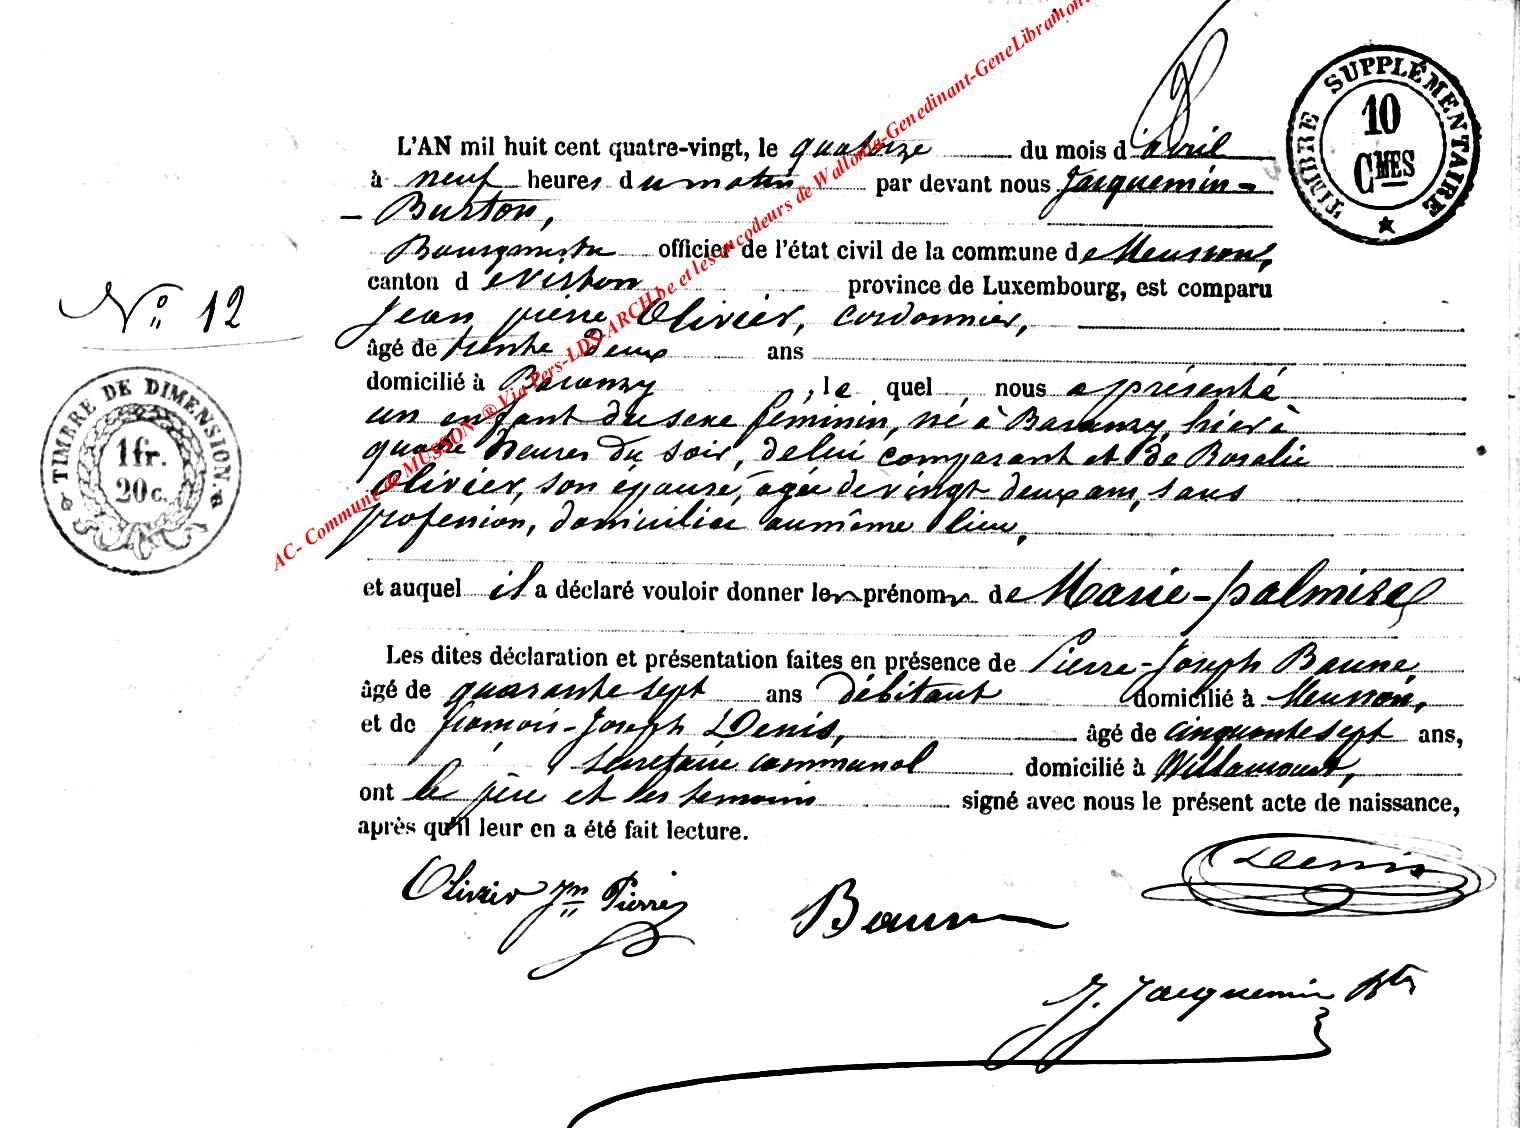 TIMBRE SUPPLÉMENTAIRE
10
CMES
L'AN mil huit cent quatre-vingt, le quatorze du mois d'avril
à neuf heures du matin par devant nous Jacquemin-
- Burton,
Bourgmestre officier de l'état civil de la commune de Musson,
canton de Virton province de Luxembourg, est comparu
N° 12
Jean pierre Olivier, cordonnier,
âgé de trente deux ans
domicilié à Baranzy, le quel nous a présenté
un enfant du sexe féminin, né à Baranzy, hier à
quatre heures du soir, de lui comparant et de Rosalie
Olivier, son épouse, agée de vingt deux ans, sans
profession, domiciliée au même lieu,
TIMBRE DE DIMENSION.
1 fr.
20 c.
et auquel il a déclaré vouloir donner les prénoms de Marie-palmire
Les dites déclaration et présentation faites en présence de Pierre-Joseph Baune
âgé de quarante sept ans débitant domicilié à Musson,
et de françois-Joseph Denis, âgé de cinquante sept ans,
secrétaire communal domicilié à Willancourt,
ont le père et les temoins signé avec nous le présent acte de naissance,
après qu'il leur en a été fait lecture.
Olivier Jn Pierre
Baune
Denis
J. Jacquemin Btn
AC- Commune de MUSSON ® Via Pers-LDS-ARCH.be et les encodeurs de Wallonia-Genedinant-GeneLibramont